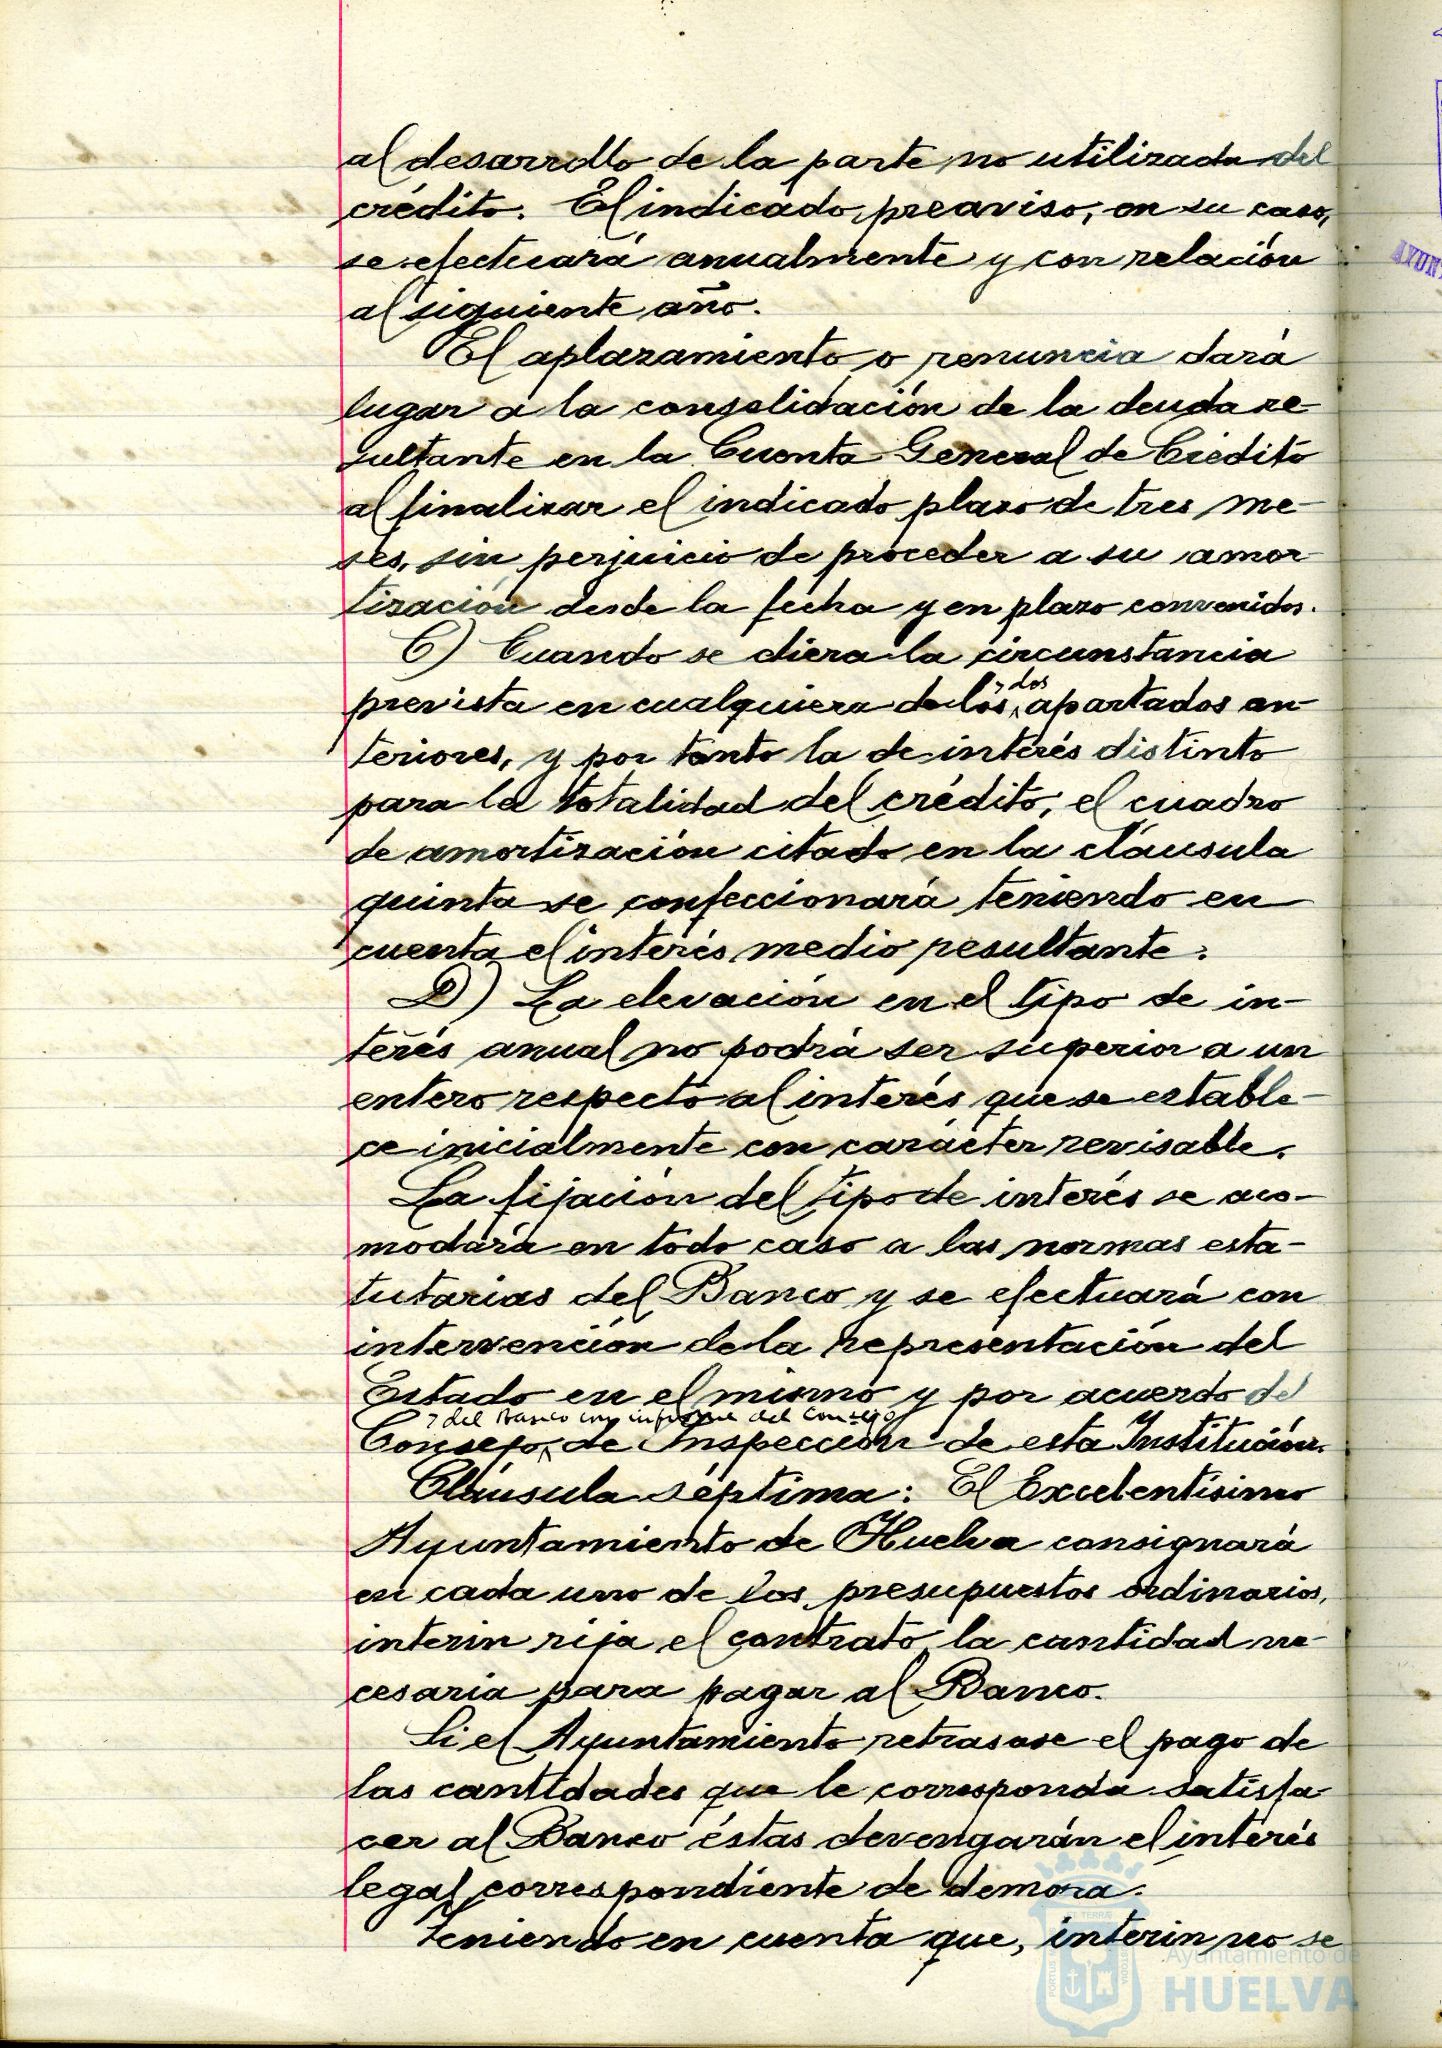 al desarrollo de la parte no utilizada del
crédito. El indicado preaviso, en su caso,
se efectuará anualmente y con relación
al siguiente año.
El aplazamiento o renuncia dará
lugar a la consolidación de la deuda re-
sultante en la Cuenta General de Crédito
al finalizar el indicado plazo de tres me-
ses, sin perjuicio de proceder a su amor-
tización desde la fecha y en plazo convenidos.
C) Cuando se diera la circunstancia
dos
prevista en cualquiera de los apartados an-
teriores, y por tanto la de interés distinto
para la totalidad del crédito, el cuadro
de amortización citado en la cláusula
quinta se confeccionará teniendo en
cuenta el interés medio resultante.
D) La elevación en el tipo de in-
terés anual no podrá ser superior a un
entero respecto al interés que se estable-
ce inicialmente con carácter revisable.
La fijación del tipo de interés se aco-
modará en todo caso a las normas esta-
tutarias del Banco y se efectuará con
intervención de la representación del
Estado en el mismo y por acuerdo del
del Banco con informe del Consejo
Consejo, de Inspección de esta Institución.
Cláusula séptima: El Excelentísimo
Ayuntamiento de Huelva consignará
en cada uno de los presupuestos ordinarios,
interin rija el contrato la cantidad ne-
cesaria para pagar al Banco.
Si el Ayuntamiento retrasase el pago de
las cantidades que le corresponda satisfa-
cer al Banco éstas devengarán el interés
legal correspondiente de demora.
Teniendo en cuenta que, interin no se
Ayuntamiento de
HUELVA
AYUN